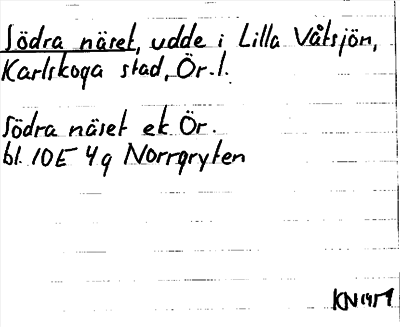 Södra näset, udde i Lilla Våtsjön,
Karlskoga stad, Ör. l.
Södra näset ek Ör.
bl. 10E 4g Norrgryten